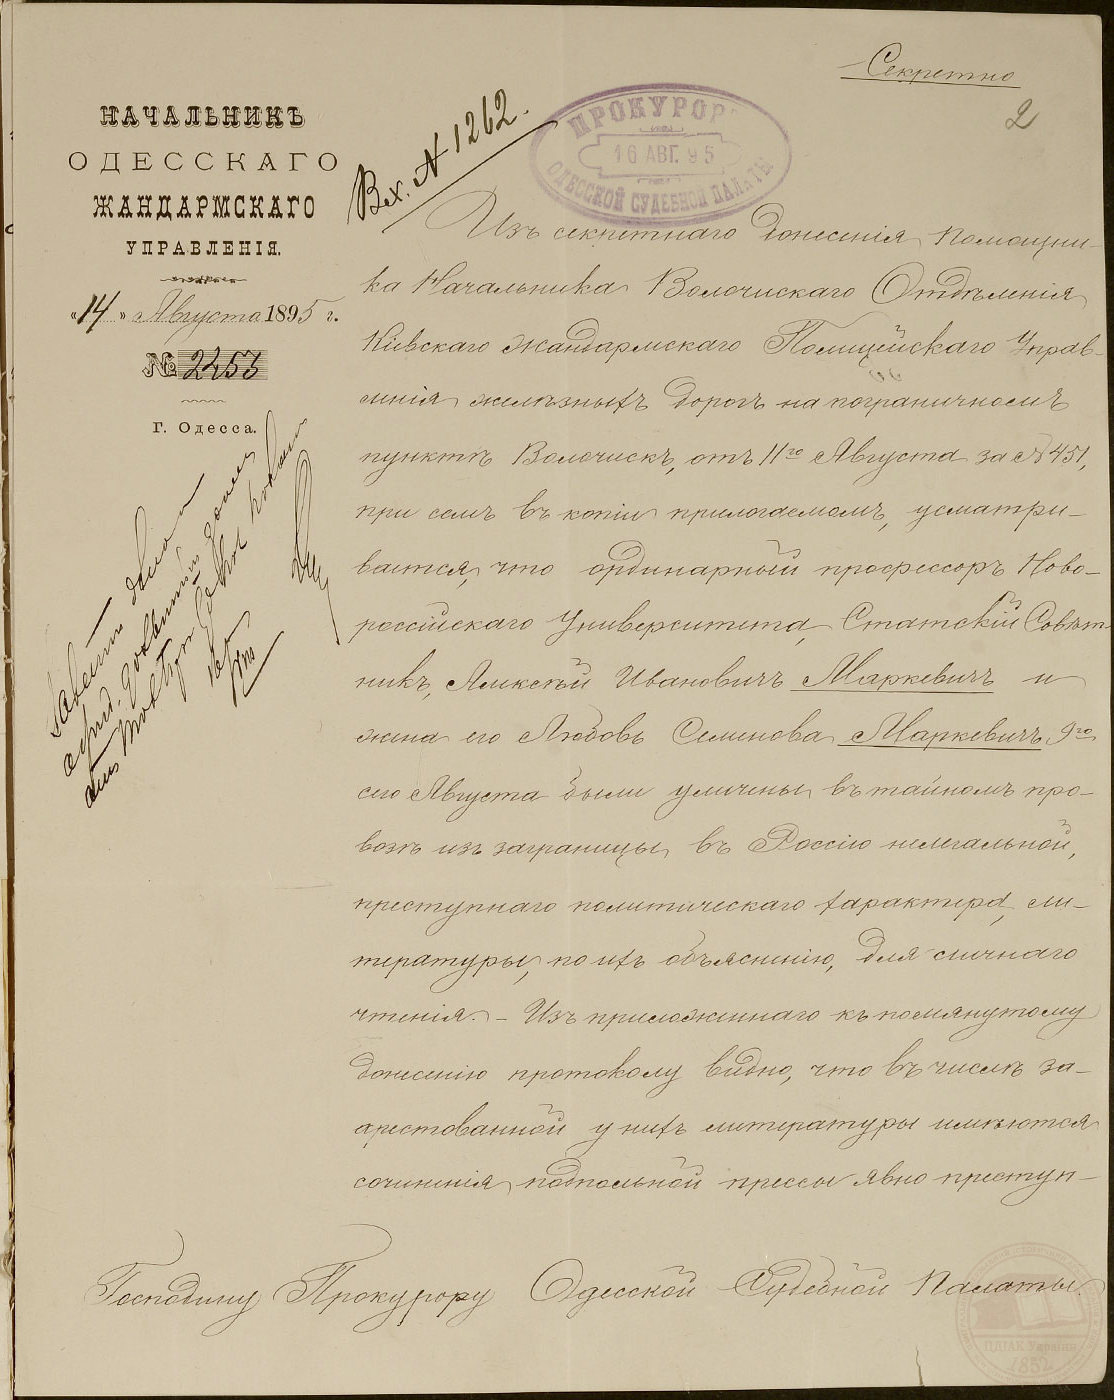 Секретно
2
НАЧАЛЬНИКЪ
ОДЕССКАГО
ЖАНДАРМСКАГО
УПРАВЛЕНІЯ.
«14» Августа 1895 г.
№ 2453
Г. Одесса.
Вх. № 1262.
ПРОКУРОР
16 АВГ. 95
ОДЕССКОЙ СУДЕБНОЙ ПАЛАТЫ
Изъ секретнаго донесенія Помощни-
ка Начальника Волочискаго Отдѣленія
Кіевскаго Жандармскаго Полицейскаго Управ-
ленія желѣзныхъ дорогъ на пограничномъ
пунктѣ Волочискъ, отъ 11го Августа за № 451,
при семъ въ копіи прилагаемомъ, усматри-
вается, что ординарный профессоръ Ново-
россійскаго Университета, Статскій Совѣт-
никъ, Алексѣй Ивановичъ Маркевичъ и
жена его Любовь Семенова Маркевичъ 9го
сего Августа были уличены въ тайномъ про-
возѣ изъ заграницы въ Россію нелегальной,
преступнаго политическаго характера, ли-
тературы, по ихъ объясненію, для личнаго
чтенія. – Изъ приложеннаго къ помянутому
донесенію протоколу видно, что въ числѣ за-
арестованной у нихъ литературы имѣются
сочиненія подпольной прессы явно преступ-
Господину Прокурору Одесской Судебной Палаты.
ЦДІАК України
1852